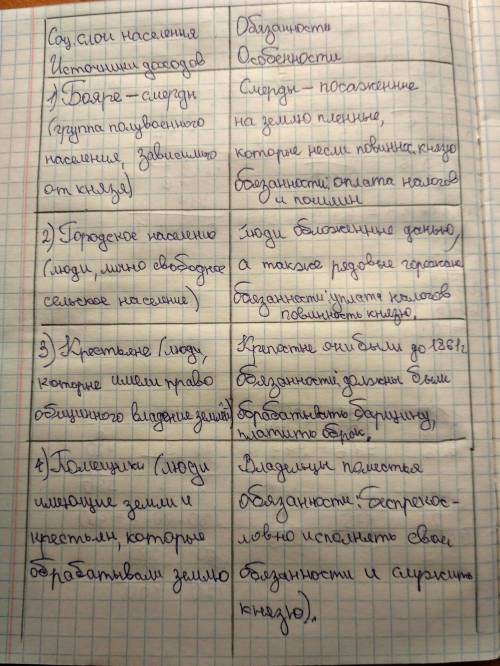 Соц. слои населения
Источники доходов
Обязанности
Особенности
1) Бояре – смерды
(группа полувоенного
населения, зависимого
от князя)
Смерды – посаженные
на землю пленные,
которые несли повинна. князю
обязанности: оплата налогов
и пошлин
2) Городское население
(люди, лично свободное
сельское население)
Люди обложенные данью,
а также рядовые горожане
обязанности: уплата налогов
повинность князю.
3) Крестьяне (люди,
которые имели право
общинного владение землёй)
Крепостне они были до 1861г
обязанности: должны были
обрабатывать барщину,
платить оброк.
4) Помещики (люди
имеющие земли и
крестьян, которые
обрабатывали землю
Владельцы поместья
обязанности: беспрекос-
ловно исполнять свои
обязанности и служить
князю).